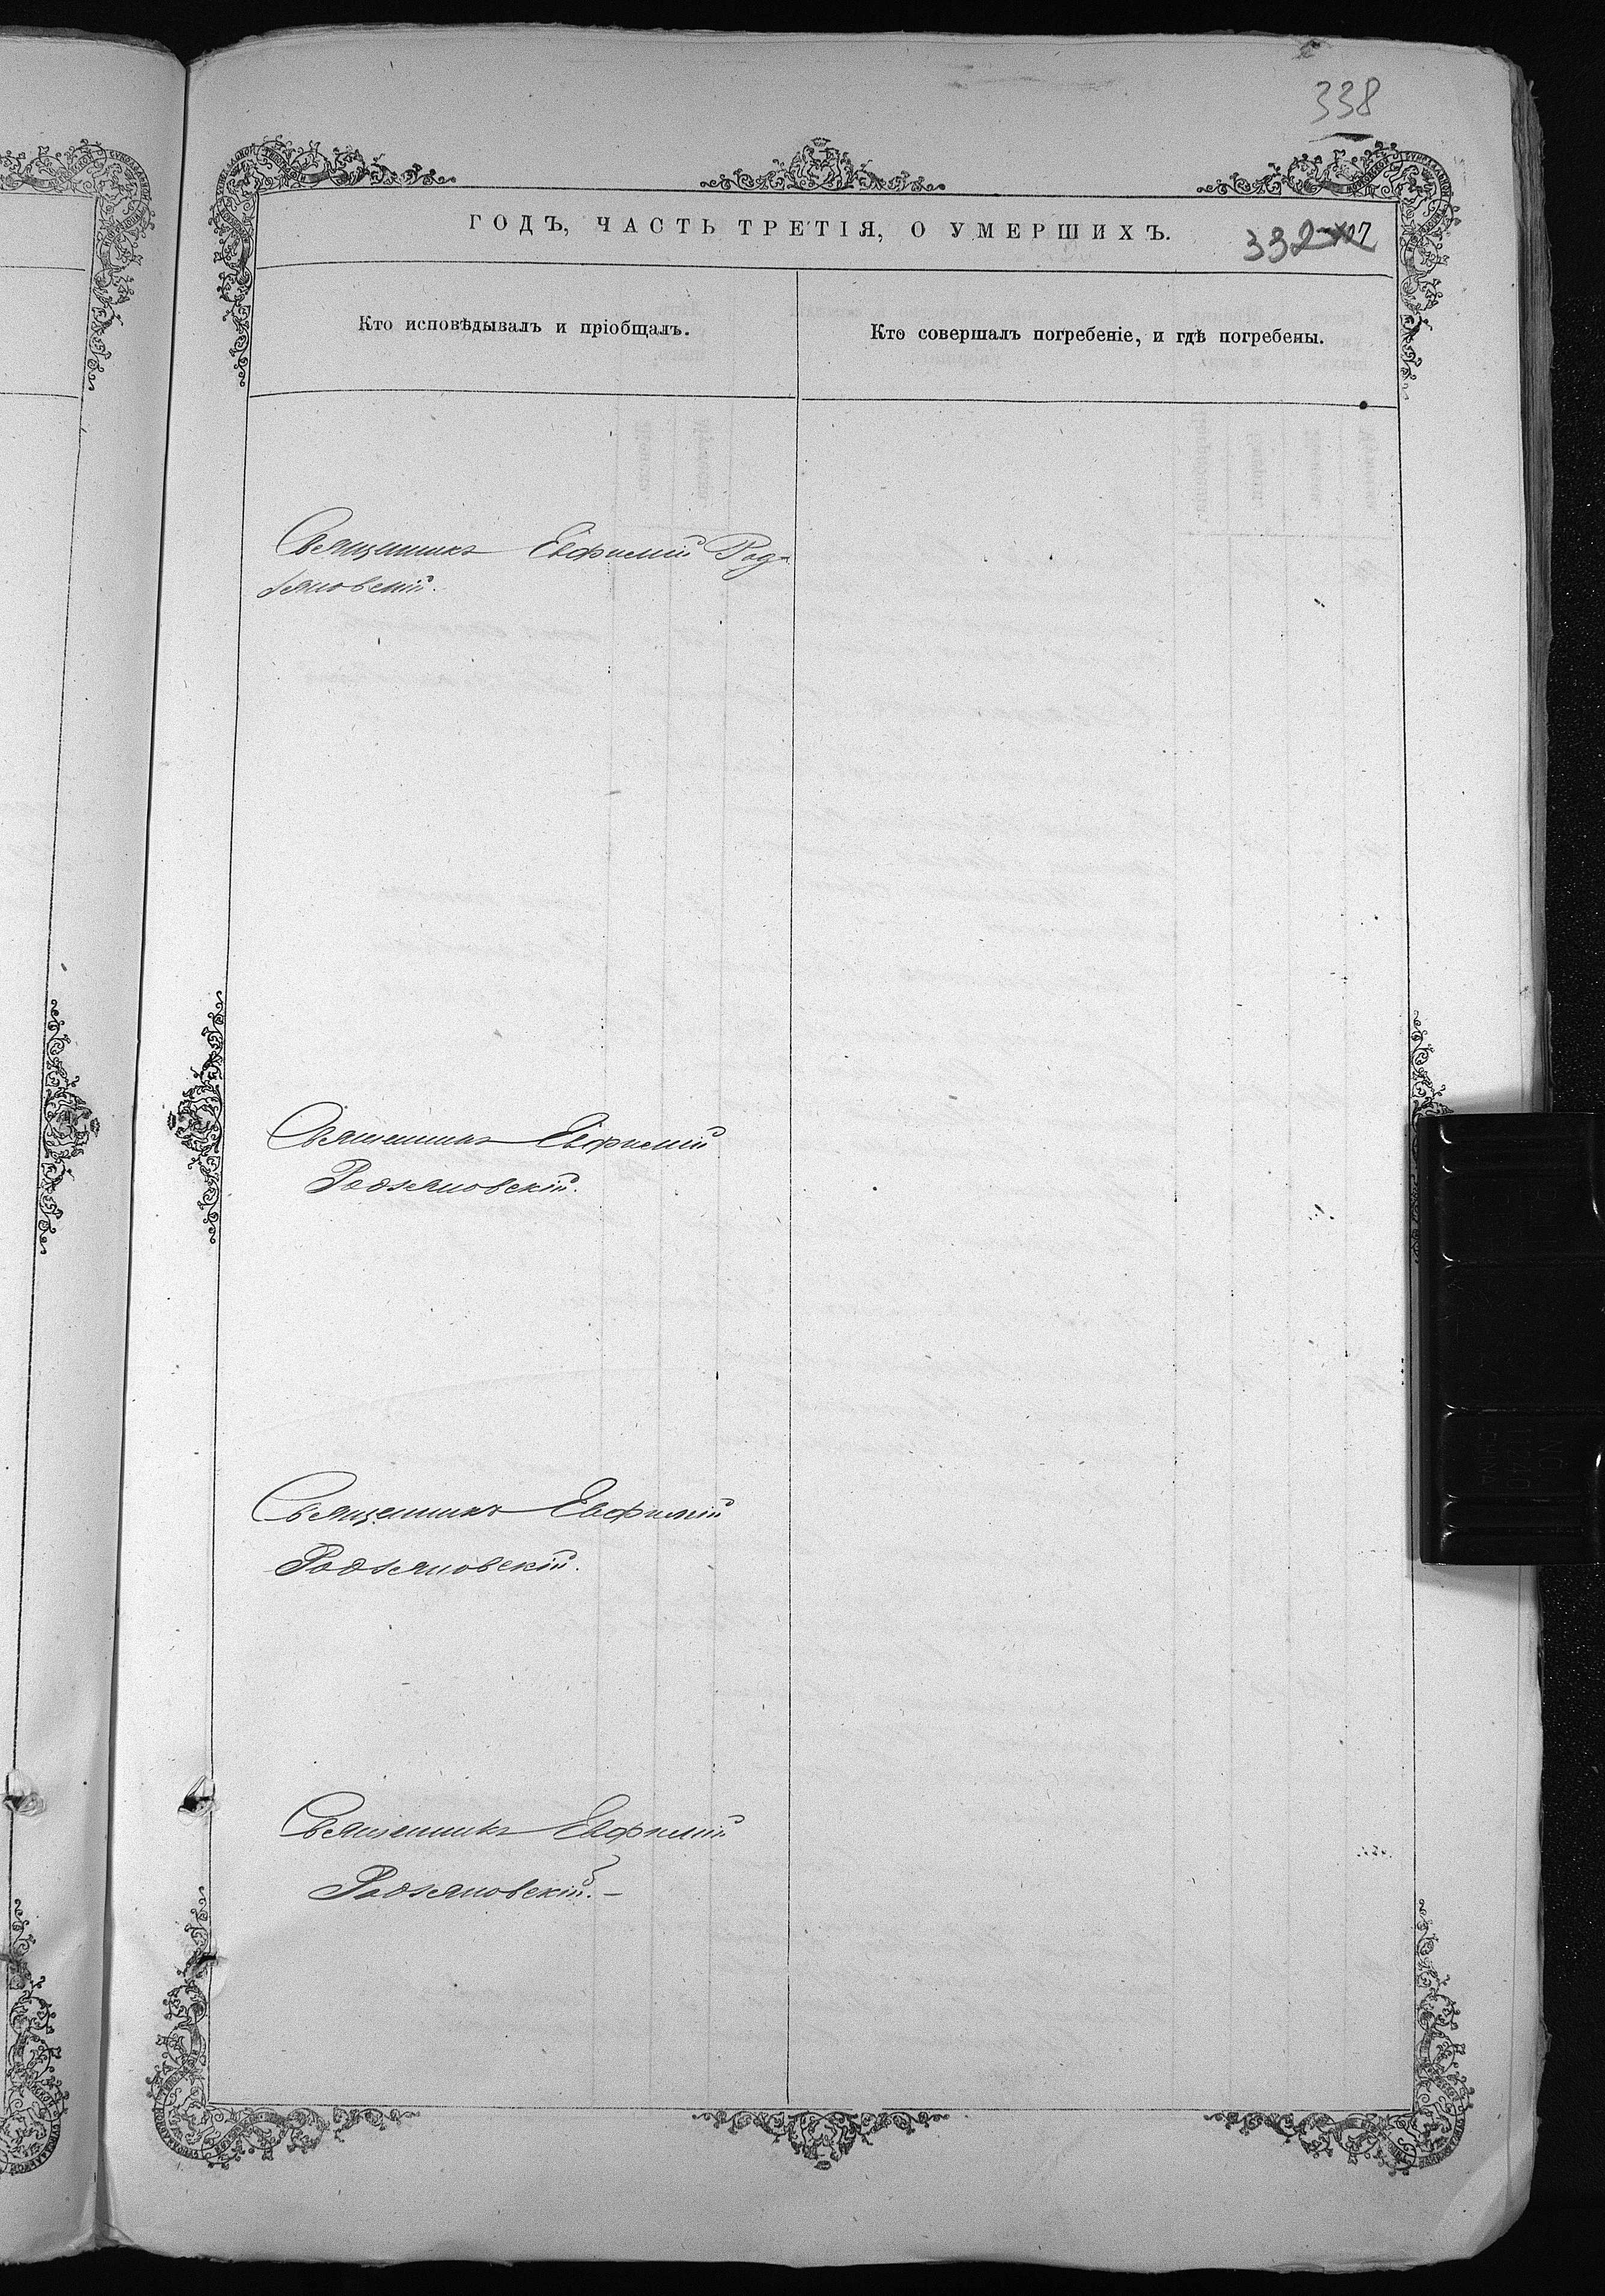 338
ГОДЪ, ЧАСТЬ ТРЕТІЯ, О УМЕРШИХЪ.
332
Кто исповѣдывалъ и пріобщалъ.
Кто совершалъ погребеніе, и гдѣ погребены.
Священникъ Евфимій Род-
зяновскій.
Священникъ Евфимій
Родзяновскій.
Священникъ Евфимій
Родзяновскій.
Священникъ Евфимій
Родзяновскій. –